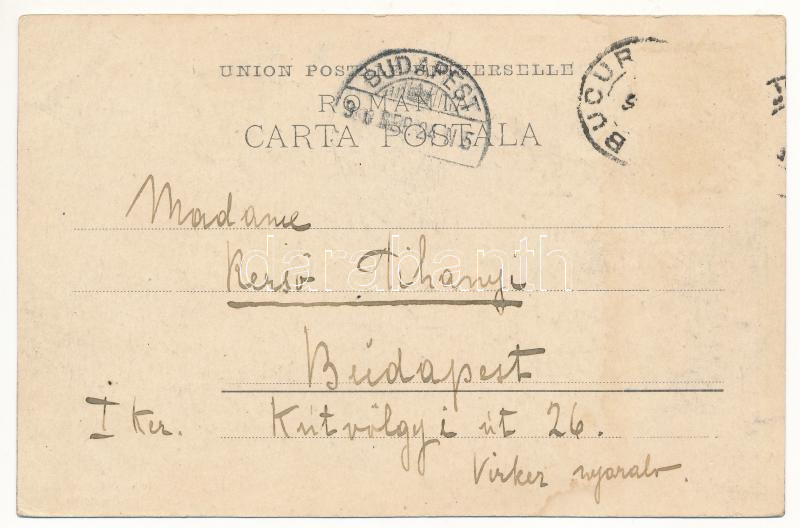 UNION POSTALE UNIVERSELLE
BUDAPEST
ROMANIA
CARTA POSTALA
BUCUR
Madame
darabanth
Kersö Tihanyi
Budapest
I ker. Kútvölgyi út 26.
Virker nyaraló.